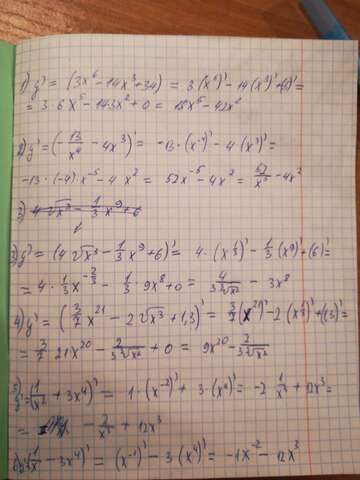 1) y' = (3x⁶ - 14x³ + 34)' = 3(x⁶)' - 14(x³)' + ( )' =
= 3·6x⁵ - 14·3x² + 0 = 18x⁵ - 42x²
2) y' = (-13/x⁴ - 4x³)' = -13·(x⁻⁴)' - 4(x³)' =
-13·(-4)x⁻⁵ - 4x² = 52x⁻⁵ - 4x² = 52/x⁵ - 4x²
3) 4√x³ - 1/3 x⁹ + 6
3) y' = (4√x³ - 1/3 x⁹ + 6)' = 4·(x^(1/3))' - 1/3(x⁹)' + (6)' =
= 4·1/3 x^(-2/3) - 1/3·9x⁸ + 0 = 4/(3∛x²) - 3x⁸
4) y' = (3/7 x²¹ - 2√x³ + 1,3)' = 3/7(x²¹)' - 2(x^(1/3))' + (1,3)' =
= 3/7·21x²⁰ - 2/(3∛x²) + 0 = 9x²⁰ - 2/(3∛x²)
5) y' = (1/x² + 3x⁴)' = 1·(x⁻²)' + 3·(x⁴)' = -2 1/x³ + 12x³ =
= - 2/x³ + 12x³
6) (1/x - 3x⁴)' = (x⁻¹)' - 3(x⁴)' = -1x⁻² - 12x³